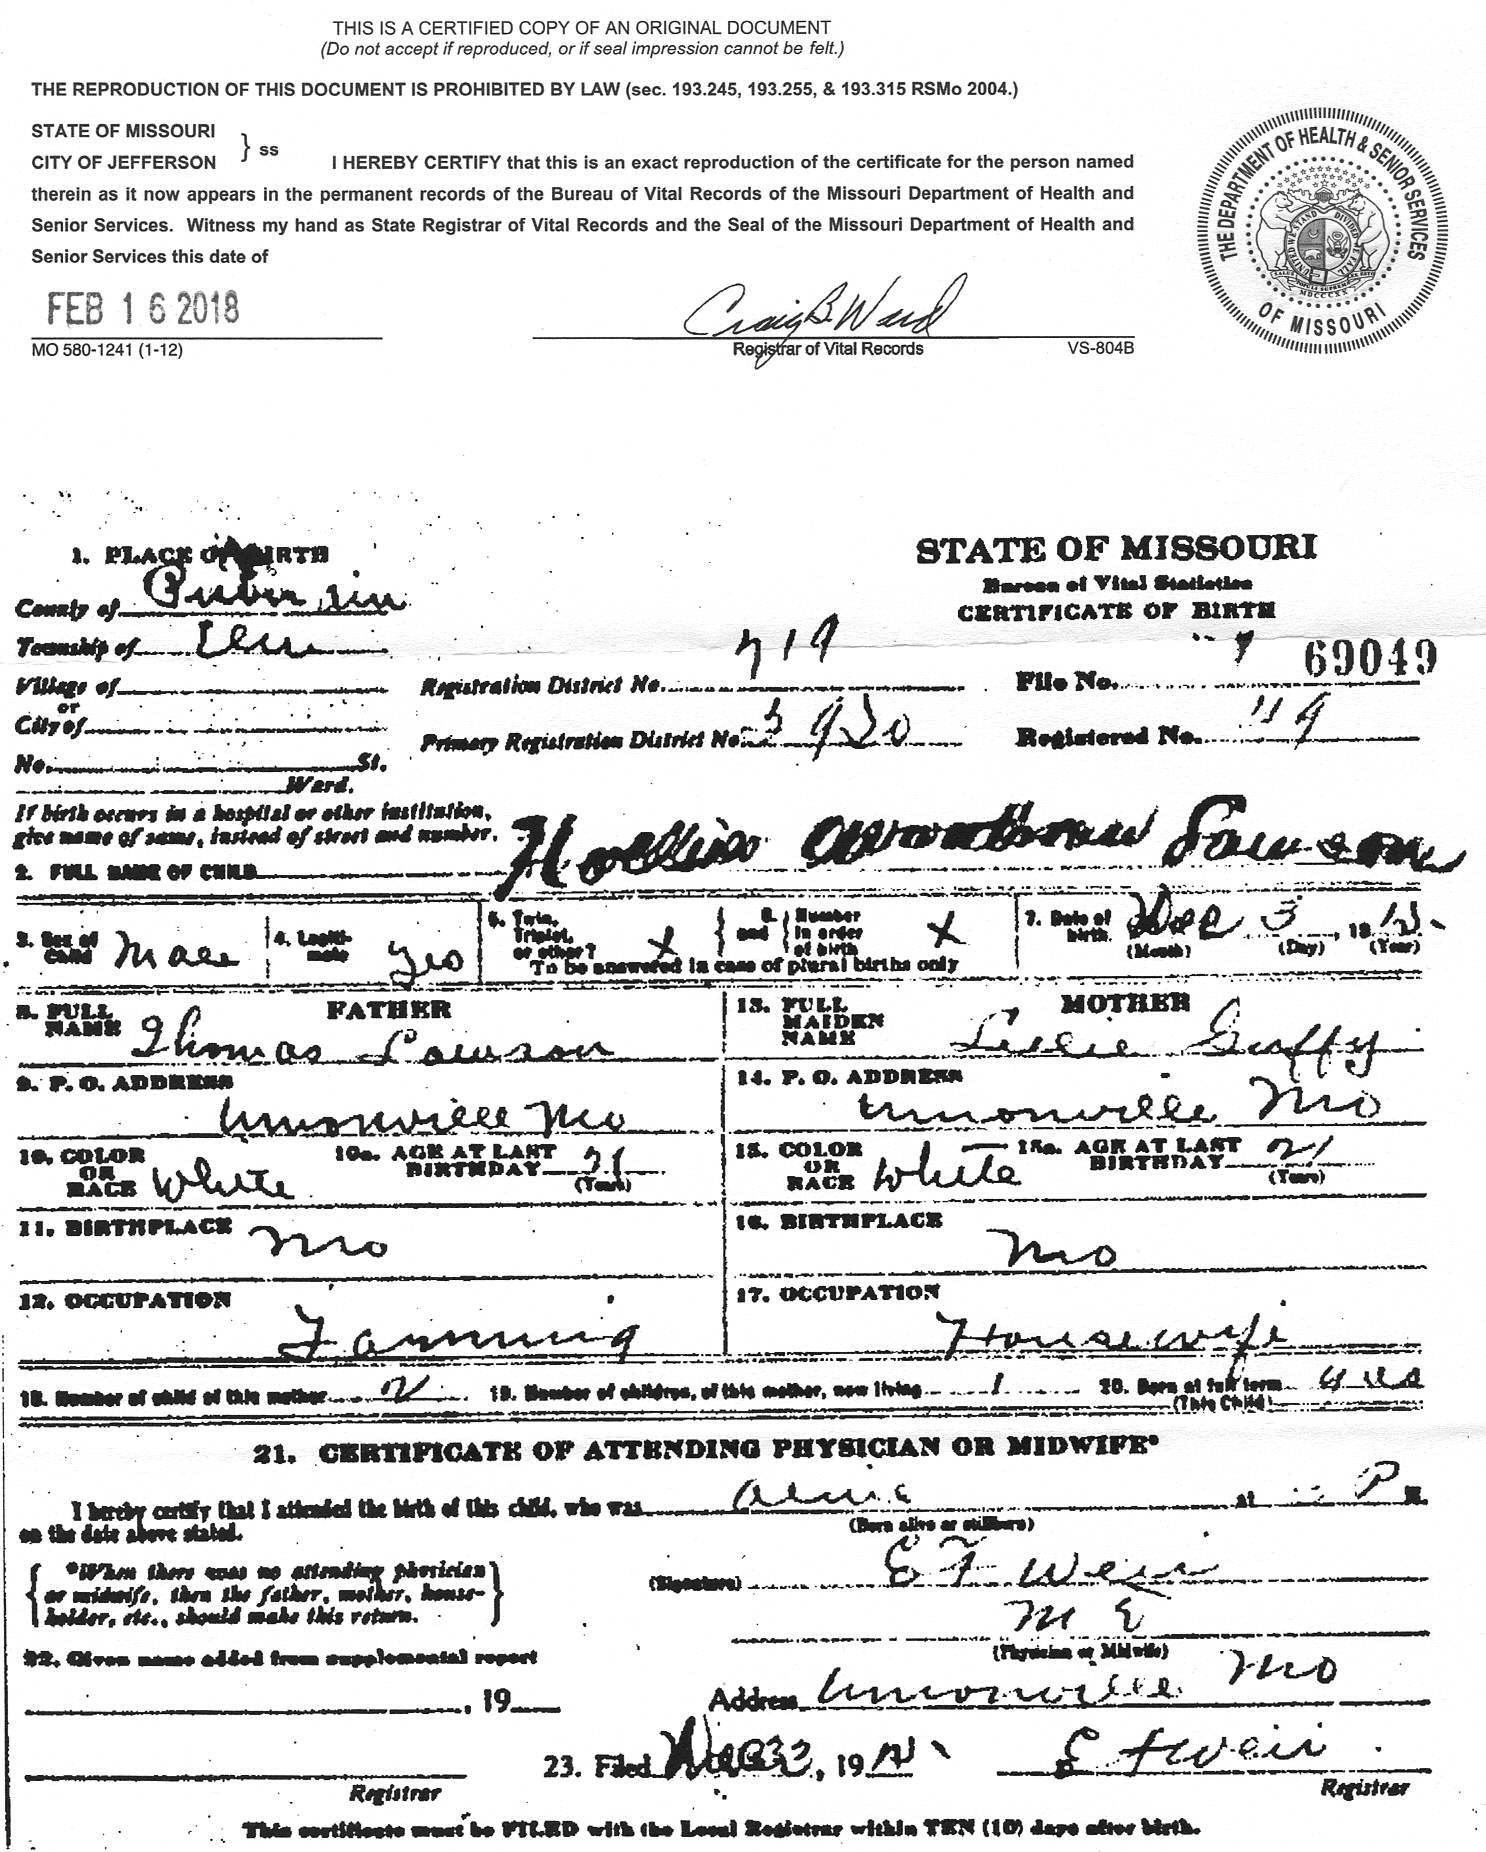 THIS IS A CERTIFIED COPY OF AN ORIGINAL DOCUMENT
(Do not accept if reproduced, or if seal impression cannot be felt.)
THE REPRODUCTION OF THIS DOCUMENT IS PROHIBITED BY LAW (sec. 193.245, 193.255, & 193.315 RSMo 2004.)
STATE OF MISSOURI
CITY OF JEFFERSON } ss I HEREBY CERTIFY that this is an exact reproduction of the certificate for the person named
therein as it now appears in the permanent records of the Bureau of Vital Records of the Missouri Department of Health and
Senior Services. Witness my hand as State Registrar of Vital Records and the Seal of the Missouri Department of Health and
Senior Services this date of
THE DEPARTMENT OF HEALTH & SENIOR SERVICES
OF MISSOURI
FEB 16 2018
Craig B. Ward
MO 580-1241 (1-12) Registrar of Vital Records VS-804B
1. PLACE OF BIRTH
STATE OF MISSOURI
Bureau of Vital Statistics
CERTIFICATE OF BIRTH
County of
Township of
Village of
or
City of
Registration District No. 719
File No. 69049
Primary Registration District No. 5920
Registered No. 119
No. St.
Ward.
If birth occurs in a hospital or other institution,
give name of same, instead of street and number.
2. FULL NAME OF CHILD Lawson
3. Sex of Child Male
4. Legitimate Yes
5. Twin, Triplet, or other? X and 6. Number in order of birth X
To be answered in case of plural births only
7. Date of birth Dec 3, 1912
(Month) (Day) (Year)
FATHER
8. FULL NAME Thomas Lawson
9. P. O. ADDRESS
Unionville Mo
10. COLOR OR RACE White
10a. AGE AT LAST BIRTHDAY (Years)
11. BIRTHPLACE Mo
12. OCCUPATION
Farming
MOTHER
13. FULL MAIDEN NAME Lillie Guffy
14. P. O. ADDRESS
Unionville Mo
15. COLOR OR RACE White
15a. AGE AT LAST BIRTHDAY 21 (Years)
16. BIRTHPLACE
Mo
17. OCCUPATION
Housewife
18. Number of child of this mother 2 19. Number of children, of this mother, now living 1 20. Born at full term yes
(This Child)
21. CERTIFICATE OF ATTENDING PHYSICIAN OR MIDWIFE*
I hereby certify that I attended the birth of this child, who was alive at P M.
on the date above stated. (Born alive or stillborn)
{ *When there was no attending physician
or midwife, then the father, mother, house-
holder, etc., should make this return. }
(Signature) E F Weir
(Physician or Midwife)
22. Given name added from supplemental report
, 19
Address Unionville Mo
23. Filed , 1912 E F Weir
Registrar Registrar
This certificate must be FILED with the Local Registrar within TEN (10) days after birth.